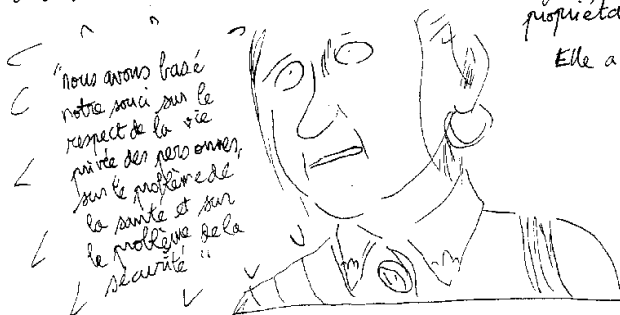 propriéta
Elle a
"nous avons basé
notre souci sur le
respect de la vie
privée des personnes,
sur le problème de
la santé et sur
le problème de la
sécurité"